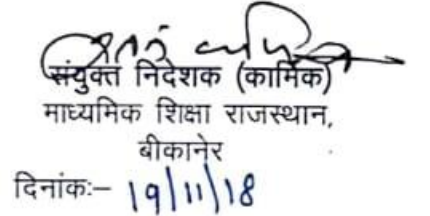 संयुक्त निदेशक (कार्मिक)
माध्यमिक शिक्षा राजस्थान,
बीकानेर
दिनांकः– 19/11/18